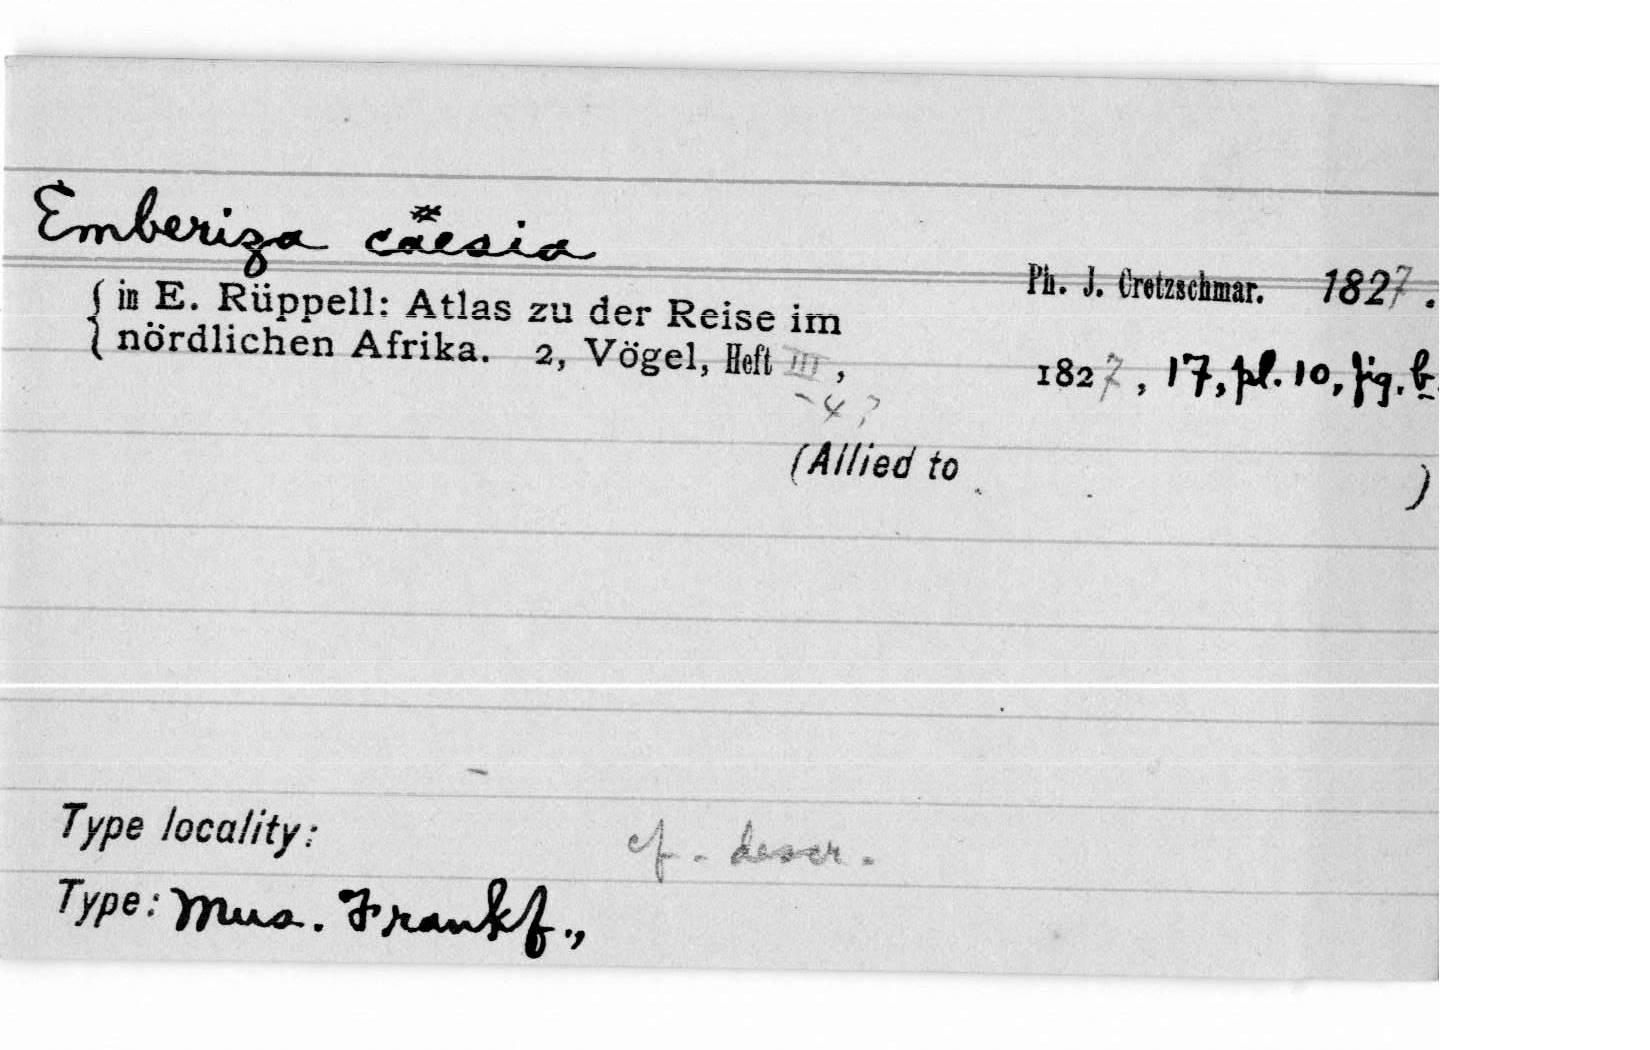 Emberiza cäesia
Ph. J. Cretzschmar. 1827.
{ in E. Rüppell: Atlas zu der Reise im
nördlichen Afrika. 2, Vögel, Heft III, 1827, 17, pl. 10, fig. b.
-4?
(Allied to )
Type locality: cf. descr.
Type: Mus. Frankf.,